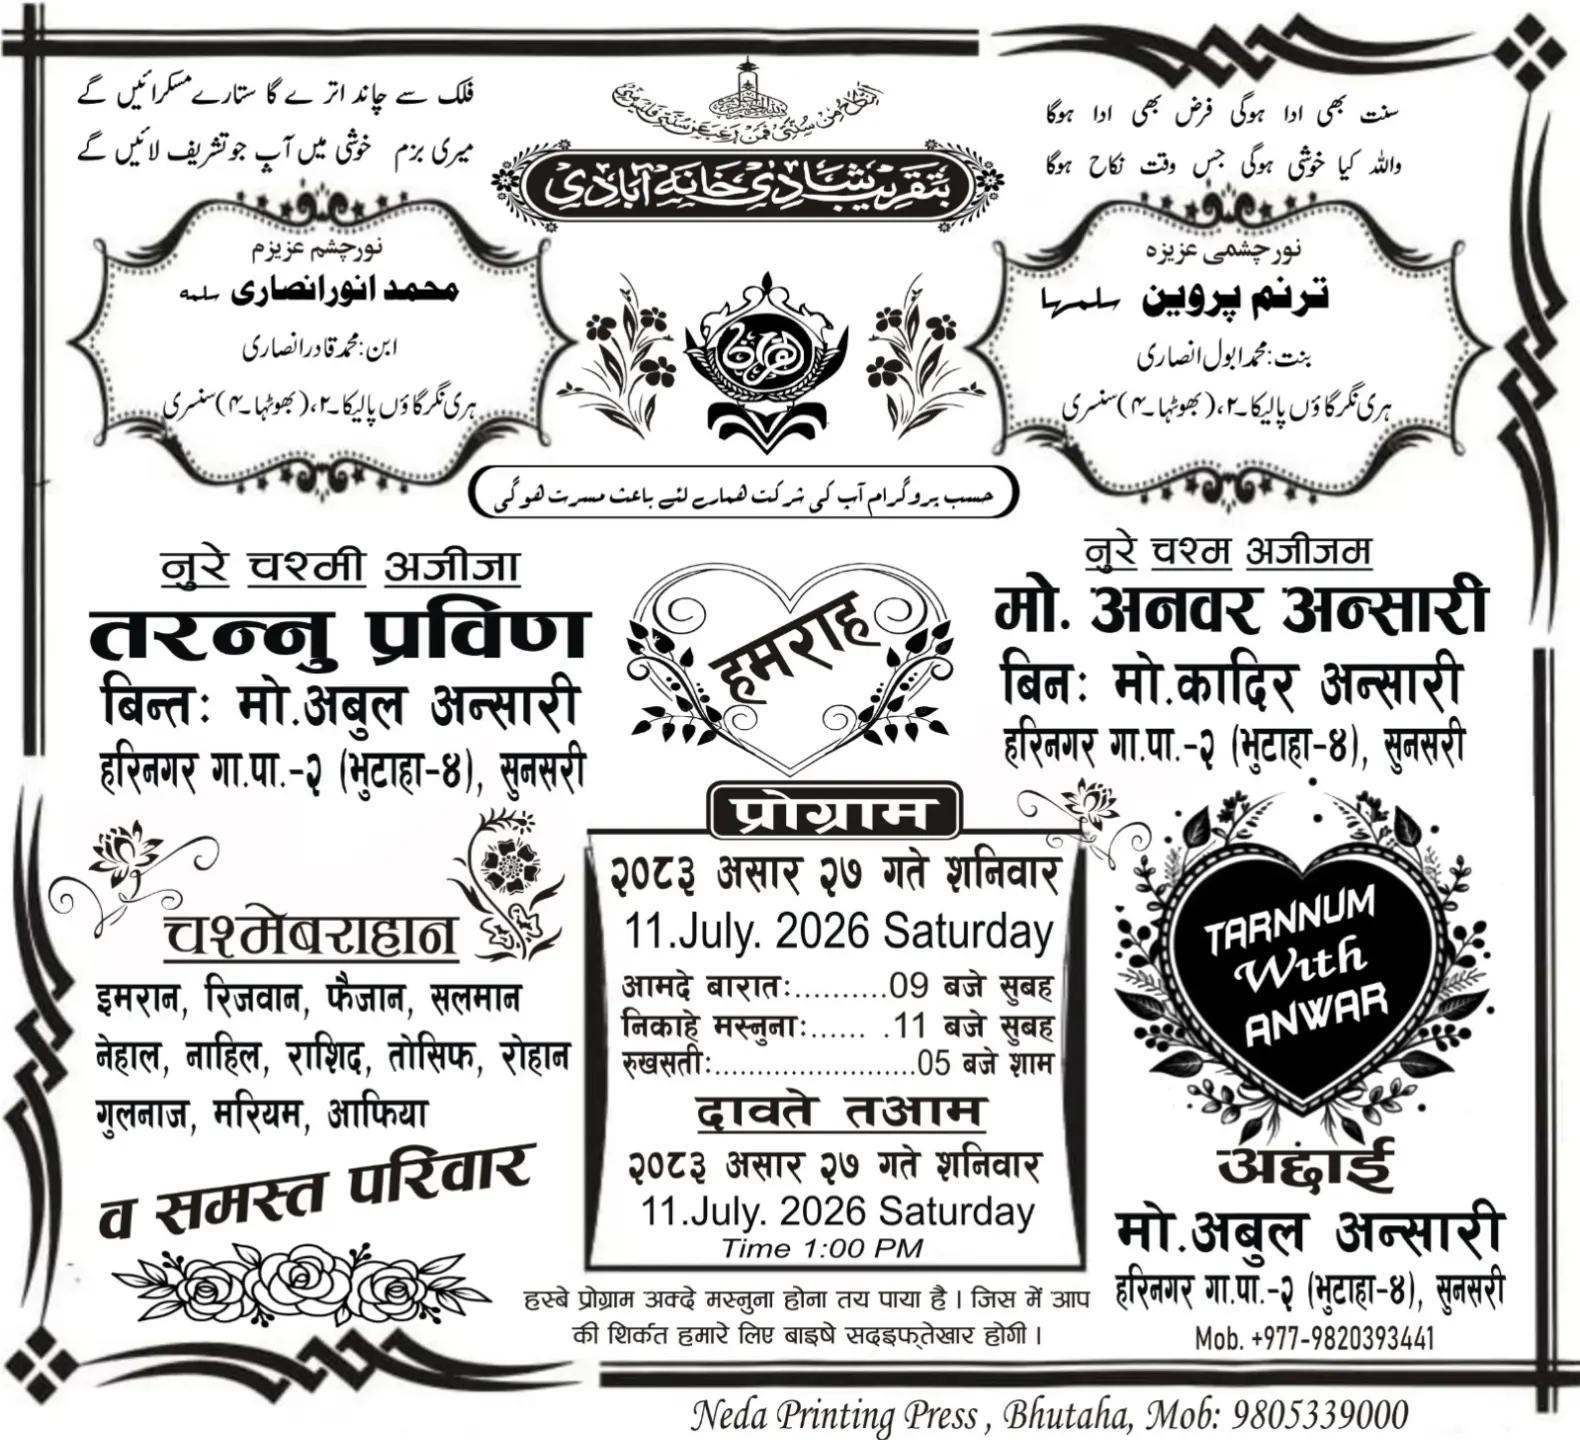 فلک سے چاند اترے گا ستارے مسکرائیں گے
میری بزم خوشی میں آپ جو تشریف لائیں گے
النكاح من سنتي فمن رغب عن سنتي فليس مني
سنت بھی ادا ہوگی فرض بھی ادا ہوگا
واللہ کیا خوشی ہوگی جس وقت نکاح ہوگا
بتقریب شادی خانہ آبادی
نور چشمی عزیزہ
ترنم پروین سلمہا
بنت: محمد ابول انصاری
ہری نگر گاؤں پالیکا۔۲، (بھوٹہا۔۴) سنسری
ہمراہ
نور چشم عزیزم
محمد انور انصاری سلمہ
ابن: محمد قادر انصاری
ہری نگر گاؤں پالیکا۔۲، (بھوٹہا۔۴) سنسری
حسب پروگرام آپ کی شرکت ھمارے لئے باعث مسرت ھوگی
नुरे चश्मी अजीजा
तरन्नु प्रविण
बिन्तः मो.अबुल अन्सारी
हरिनगर गा.पा.-२ (भुटाहा-४), सुनसरी
हमराह
नुरे चश्म अजीजम
मो. अनवर अन्सारी
बिनः मो.कादिर अन्सारी
हरिनगर गा.पा.-२ (भुटाहा-४), सुनसरी
चश्मेबराहान
इमरान, रिजवान, फैजान, सलमान
नेहाल, नाहिल, राशिद, तोसिफ, रोहान
गुलनाज, मरियम, आफिया
व समस्त परिवार
प्रोग्राम
२०८३ असार २७ गते शनिवार
11.July. 2026 Saturday
आमदे बारातः..........09 बजे सुबह
निकाहे मस्नुनाः...... .11 बजे सुबह
रुखसतीः........................05 बजे शाम
दावते तआम
२०८३ असार २७ गते शनिवार
11.July. 2026 Saturday
Time 1:00 PM
हस्बे प्रोग्राम अक्दे मस्नुना होना तय पाया है । जिस में आप
की शिर्कत हमारे लिए बाइषे सदइफ्तेखार होगी ।
TARNNUM
With
ANWAR
अद्दाई
मो.अबुल अन्सारी
हरिनगर गा.पा.-२ (भुटाहा-४), सुनसरी
Mob. +977-9820393441
Neda Printing Press , Bhutaha, Mob: 9805339000